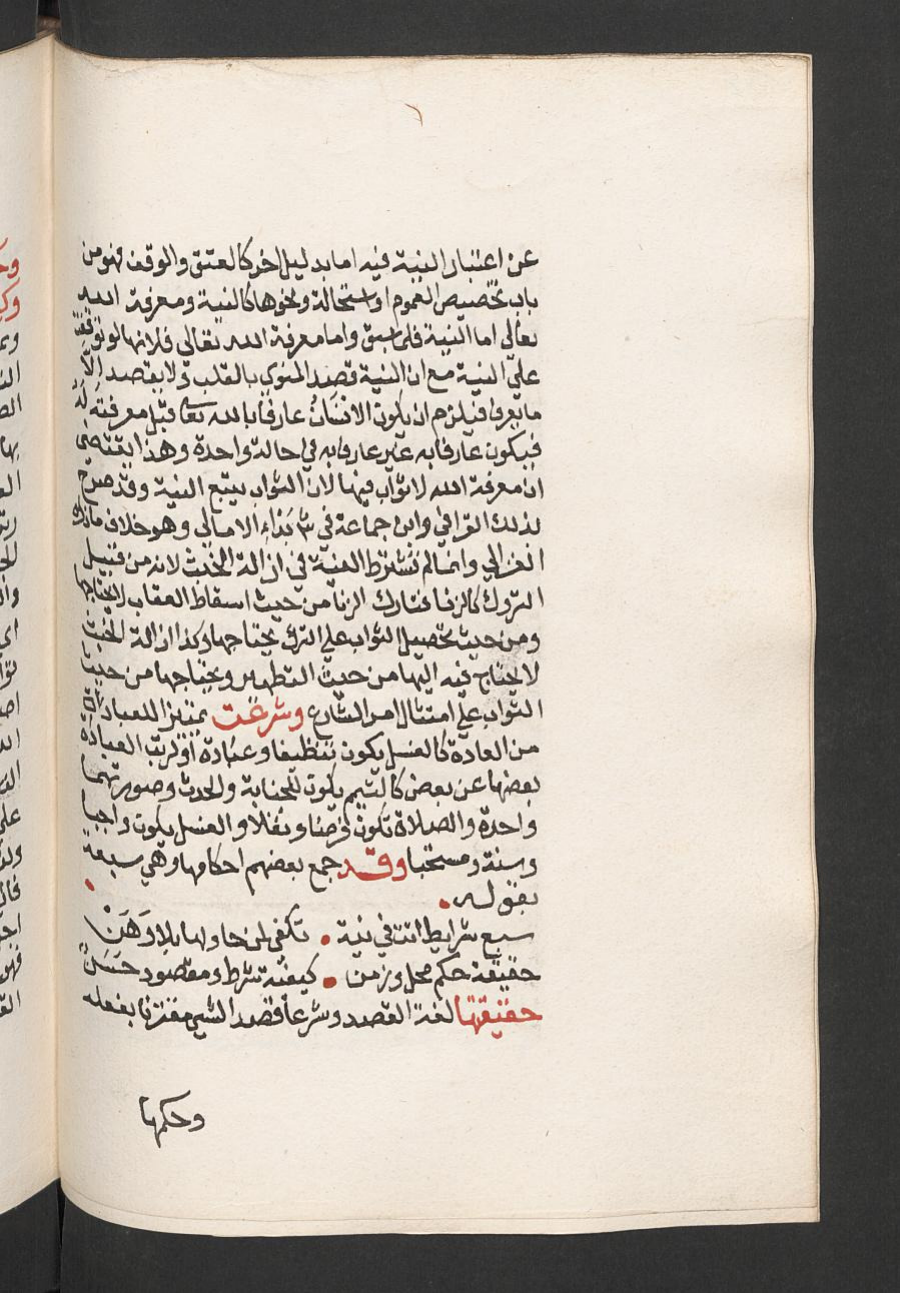 عن اعتبار النية فيه اما بدليل اخر كالعتق والوقف فهو من
باب تخصيص العموم او استحالة ونحوها كالنية ومعرفة الله
تعالى اما النية فلما سبق واما معرفة الله تعالى فلانها لو توقفت
على النية مع ان النية قصد المنوي بالقلب ولا يقصد إلاَّ
ما يعرف فيلزم ان يكون الانسَانُ عارفا بالله تعا قبل معرفته لَهُ
فيكون عارفا به غير عارف به في حالة واحدة وهذا يقتضى
ان معرفة الله لا ثواب فيها لان الثواب يتبع النية وقد صرح
بذلك القرافي وابن جماعة في بَدَاء الامالي وهو خلاف ما ذكره
الغزالي وانما لم تشترط النية في ازالة الخبث لانه من قبيل
التروك كالزنا فتارك الزنا من حيث اسقاط العقاب لا يحتاجها
ومن حيث تحصيل الثواب على الترك يحتاجها وكذا ازالة الخبث
لا يحتاج فيه اليها من حيث التطهير ويحتاجها من حيث
الثواب على امتثال امر الشارع وشرعت تمييزا للعبادة
من العادة كالغسل يكون تنظيفا وعبادة او لرتب العبادة
بعضها عن بعض كالتيمم يكون للجنابة والحدث وصورتهما
واحدة والصلاة تكون فرضا ونفلا والغسل يكون واجبا
وسنة ومستحبا وقد جمع بعضهم احكامها وهي سبعة
بقوله
سبع شرايط اتت في نية • تكفي لمن حاولها بلا وَهَنْ
حقيقة حكم محل وزمن • كيفية شرط ومقصود حَسَنْ
حقيقتها لغة القصد وشرعا قصد الشي مقترنا بفعله
وحكمها